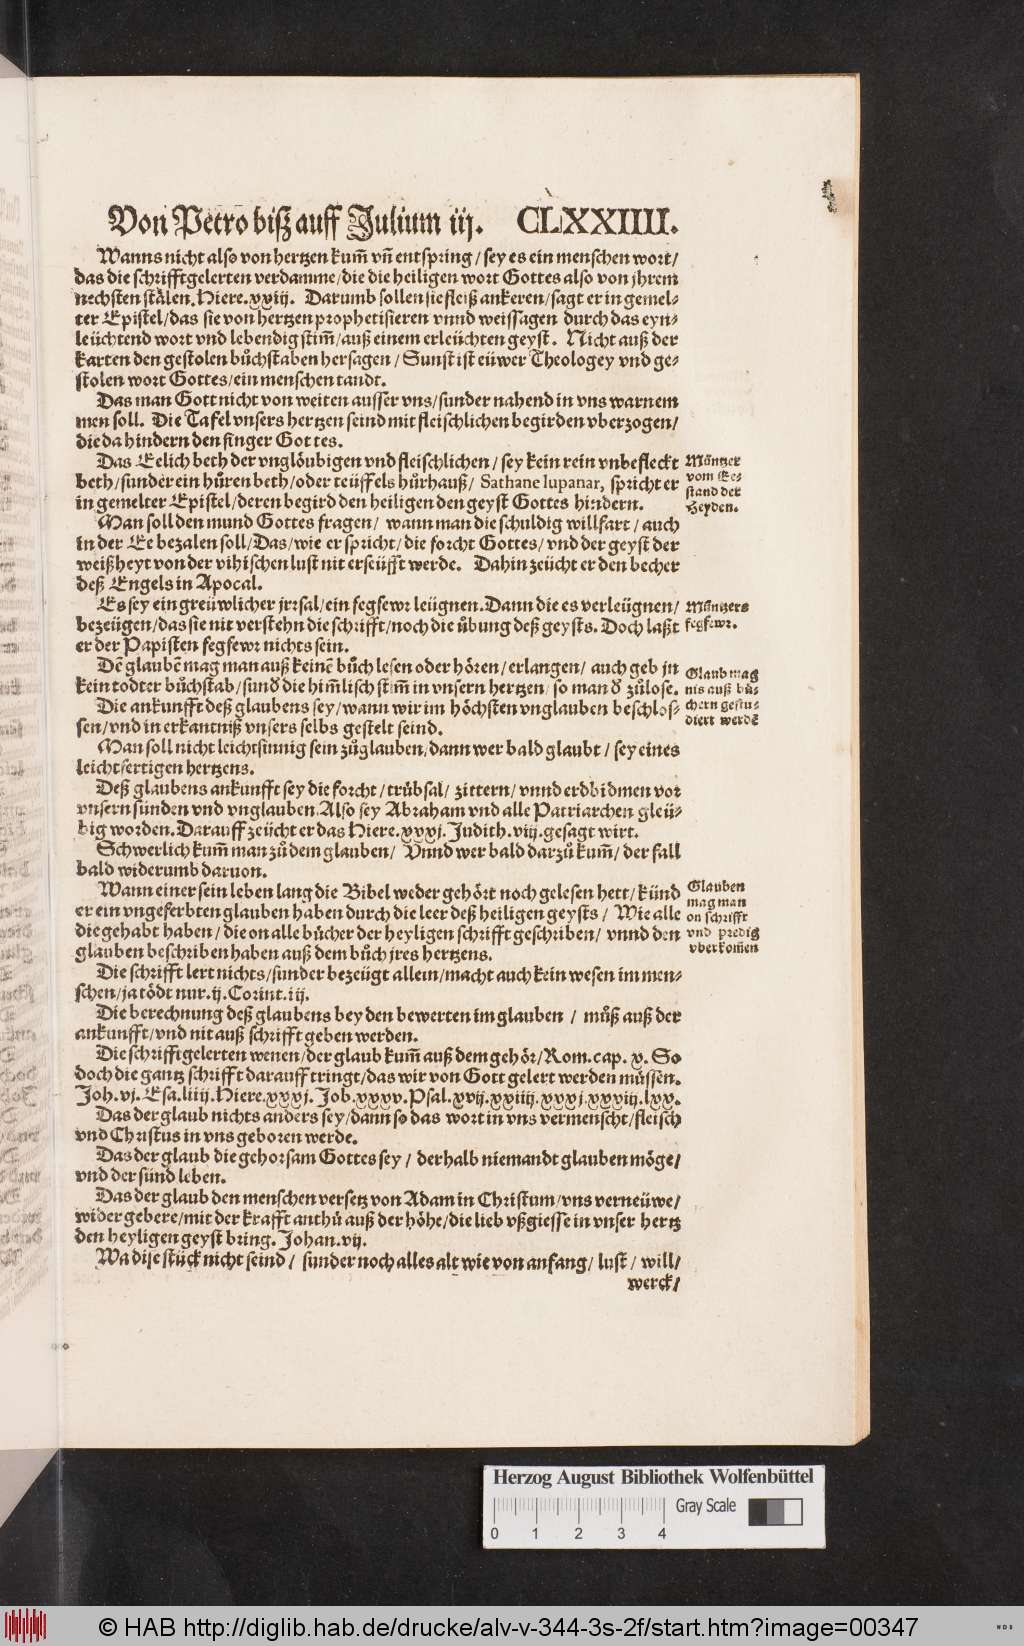 Von Petro biß auff Julium iij. CLXXIIII.
Wanns nicht also von hertzen kum̃ vñ entspring / sey es ein menschen wort /
das die schrifftgelerten verdamme / die die heiligen wort Gottes also von jhrem
nechsten stålen. Hiere. xxiij. Darumb sollen sie fleiß ankeren / sagt er in gemel-
ter Epistel / das sie von hertzen prophetisieren vnnd weissagen durch das eyn-
leüchtend wort vnd lebendig stim̃ / auß einem erleüchten geyst. Nicht auß der
karten den gestolen bůchstaben hersagen / Sunst ist eüwer Theologey vnd ge-
stolen wort Gottes / ein menschen tandt.
Das man Gott nicht von weiten ausser vns / sunder nahend in vns warnem
men soll. Die Tafel vnsers hertzen seind mit fleischlichen begirden vberzogen /
die da hindern den finger Gottes.
Das Eelich beth der vnglöubigen vnd fleischlichen / sey kein rein vnbefleckt
beth / sunder ein hůren beth / oder teüffels hůrhauß / Sathane lupanar, spricht er
in gemelter Epistel / deren begird den heiligen den geyst Gottes hindern.
Müntzer
vom Ee-
stand der
Heyden.
Man soll den mund Gottes fragen / wann man die schuldig willfart / auch
in der Ee bezalen soll / Das / wie er spricht / die forcht Gottes / vnd der geyst der
weißheyt von der vihischen lust nit erseüfft werde. Dahin zeücht er den becher
deß Engels in Apocal.
Es sey ein greüwlicher jrrsal / ein fegfewr leügnen. Dann die es verleügnen /
bezeügen / das sie nit verstehn die schrifft / noch die übung deß geysts. Doch laßt
er der Papisten fegfewr nichts sein.
Müntzers
fegfewr.
Dē glaubē mag man auß keinē bůch lesen oder hören / erlangen / auch geb jn
kein todter bůchstab / sund̄ die him̃lisch stim̃ in vnsern hertzen / so man d̄ zůlose.
Glaub mag
nis auß bü-
chern gestu-
diert werdē
Die ankunfft deß glaubens sey / wann wir im höchsten vnglauben beschlos-
sen / vnd in erkantniß vnsers selbs gestelt seind.
Man soll nicht leichtsinnig sein zůglauben / dann wer bald glaubt / sey eines
leichtfertigen hertzens.
Deß glaubens ankunfft sey die forcht / trübsal / zittern / vnnd erdbidmen vor
vnsern sünden vnd vnglauben. Also sey Abraham vnd alle Patriarchen gleü-
big worden. Darauff zeücht er das Hiere. xxxj. Judith. viij. gesagt wirt.
Schwerlich kum̃ man zů dem glauben / Vnnd wer bald darzů kum̃ / der fall
bald widerumb daruon.
Wann einer sein leben lang die Bibel weder gehört noch gelesen hett / künd
er ein vngeferbten glauben haben durch die leer deß heiligen geysts / Wie alle
die gehabt haben / die on alle bücher der heyligen schrifft geschriben / vnnd den
glauben beschriben haben auß dem bůch jres hertzens.
Glauben
mag man
on schrifft
vnd predig
vberkom̃en
Die schrifft lert nichts / sunder bezeügt allein / macht auch kein wesen im men-
schen / ja tödt nur. ij. Corint. iij.
Die berechnung deß glaubens bey den bewerten im glauben / můß auß der
ankunfft / vnd nit auß schrifft geben werden.
Die schrifftgelerten wenen / der glaub kum̃ auß dem gehör / Rom. cap. x. So
doch die gantz schrifft darauff tringt / das wir von Gott gelert werden müssen.
Joh. vj. Esa. liiij. Hiere. xxxj. Job. xxxv. Psal. xvij. xxiiij. xxxj. xxxvij. lxx.
Das der glaub nichts anders sey / dann so das wort in vns vermenscht / fleisch
vnd Christus in vns geboren werde.
Das der glaub die gehorsam Gottes sey / derhalb niemandt glauben möge /
vnd der sünd leben.
Das der glaub den menschen versetz von Adam in Christum / vns verneüwe /
widergebere / mit der krafft anthů auß der höhe / die lieb vßgiesse in vnser hertz
den heyligen geyst bring. Johan. vij.
Wa dise stück nicht seind / sunder noch alles alt wie von anfang / lust / will /
werck /
Herzog August Bibliothek Wolfenbüttel
0 1 2 3 4
Gray Scale
© HAB http://diglib.hab.de/drucke/alv-v-344-3s-2f/start.htm?image=00347